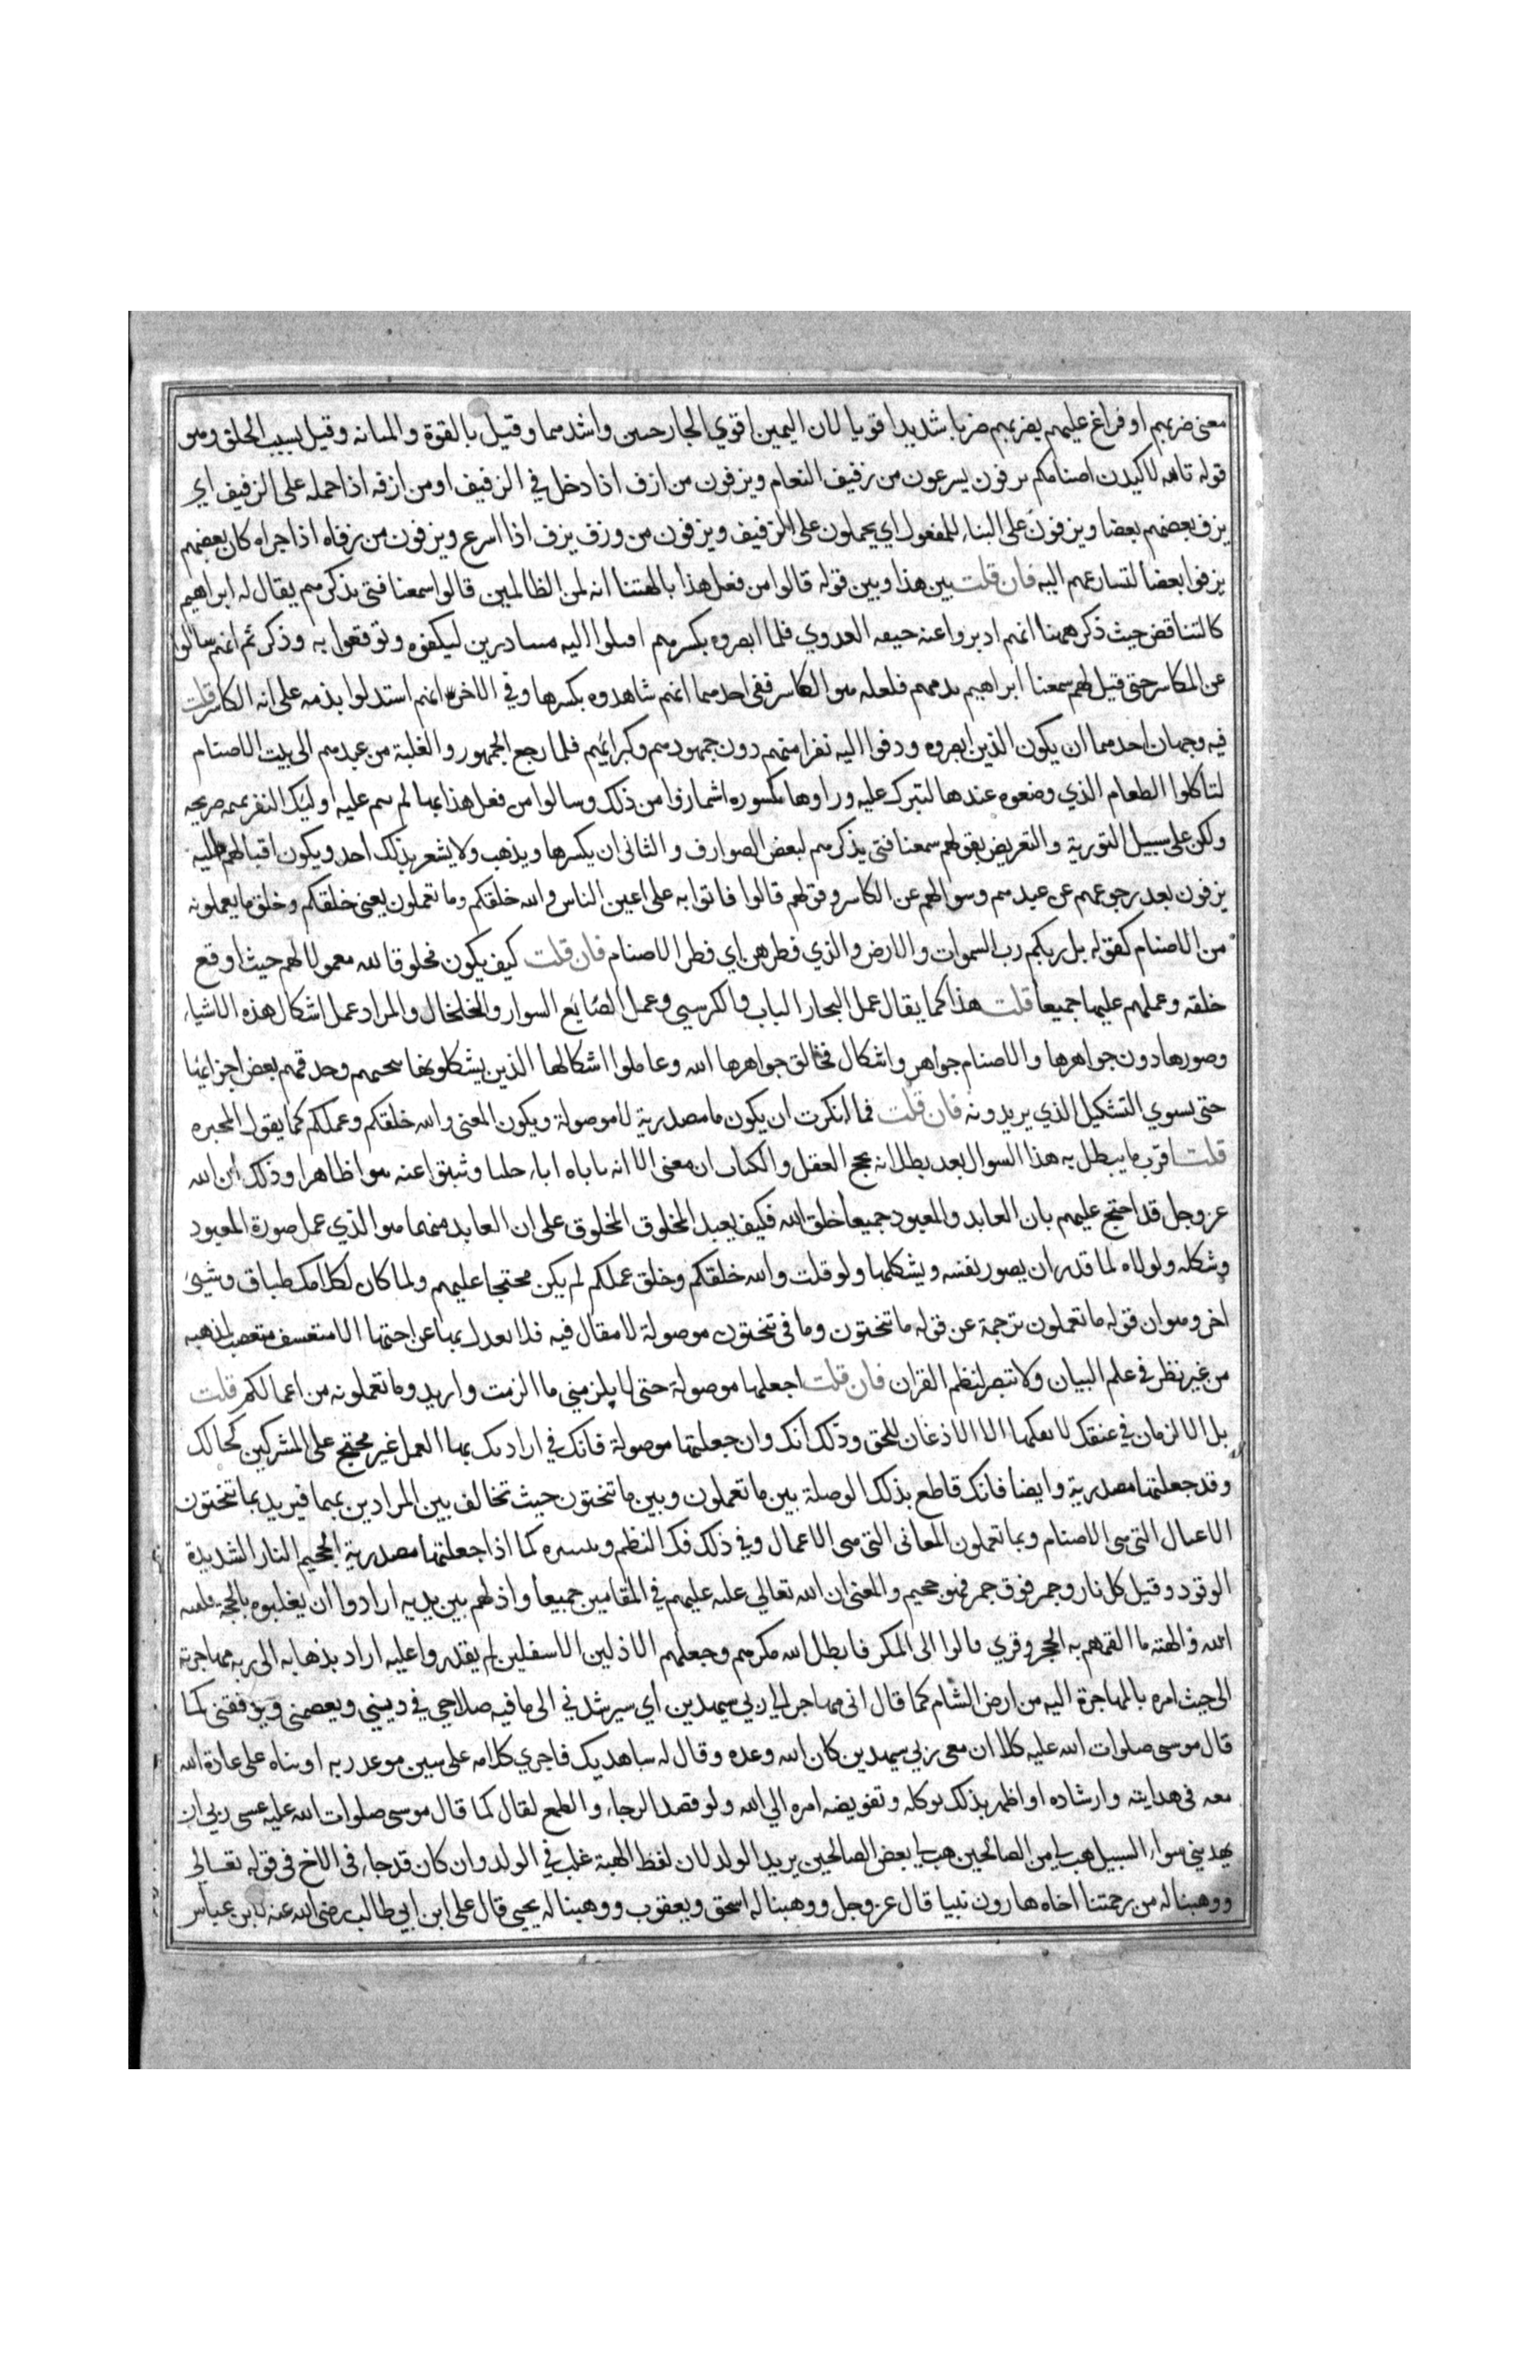 معنى ضربهم او فراغ عليهم يضربهم ضربا شديدا قويا لان اليمين اقوي الجارحتين واشدهما وقيل بالقوة والمتانه وقيل بسبب الحلق وهو
قوله تالله لاكيدن اصنامكم يزفون يسرعون من زفيف النعام ويزفون من ازف اذا دخل في الزفيف او من ازفه اذا حمله على الزفيف اي
يزف بعضهم بعضا ويزفون على البناء للمفعول اي يحملون على الزفيف ويزفون من وزف يزف اذا اسرع ويزفون من زفاه اذا حداه كان بعضهم
يزفوا بعضا لتسارعهم اليه فان قلت بين هذا وبين قوله قالوا من فعل هذا بالهتنا انه لمن الظالمين قالوا سمعنا فتى يذكرهم يقال له ابراهيم
كالتناقض حيث ذكر ههنا انهم ادبروا عنه خيفه العدوي فلما ابصروه يكسرهم اقبلوا اليه متبادرين ليكفوه ويوقعوا به وذكر ثم انهم سالوا
عن الكاسر حتى قيل لهم سمعنا ابراهيم يذمهم فلعله هو الكاسر ففى احدهما انهم شاهدوه يكسرها وفي الاخر انهم استدلوا بذمه على انه الكاسر قلت
فيه وجهان احدهما ان يكون الذين ابصروه وزفوا اليه نفرا منهم دون جمهورهم وكبرائهم فلما رجع الجمهور والغلبة من عيدهم الى بيت الاصنام
لتاكلوا الطعام الذي وضعوه عندها لتبرك عليه وراوها مكسوره اشمازوا من ذلك وسالوا من فعل هذا بها لم ينم عليه اوليك النفر نميمه صريحه
ولكن على سبيل التورية والتعريض بقولهم سمعنا فتى يذكرهم لبعض الصوارف والثانى ان يكسرها ويذهب ولا يشعر بذلك احد ويكون اقبالهم اليه
يزفون بعد رجوعهم عن عيدهم وسوالهم عن الكاسر وقولهم قالوا فاتوا به على اعين الناس والله خلقكم وما تعملون يعني خلقكم وخلق ما يعملونه
من الاصنام كقوله بل ربكم رب السموات والارض والذي فطرهن اي فطر الاصنام فان قلت كيف يكون مخلوقا لله معمولا لهم حيث اوقع
خلقه وعملهم عليها جميعا قلت هذا كما يقال عمل النجار الباب والكرسي وعمل الصايغ السوار والخلخال والمراد عمل اشكال هذه الاشياء
وصورها دون جواهرها والاصنام جواهر واشكال فخالق جواهرها الله وعاملوا اشكالها الذين يشكلونها بنحتهم وحذفهم بعض اجزائها
حتى يسوي التشكيل الذي يريدونه فان قلت فما انكرت ان يكون ما مصدرية لا موصولة ويكون المعنى والله خلقكم وعملكم كما يقول المجبره
قلت اقرب ما يبطل به هذا السوال بعد بطلانه بحجج العقل والكتاب ان معنى الاية ياباه اباء جليا وينبو عنه نبوا ظاهرا وذلك ان الله
عز وجل قد احتج عليهم بان العابد والمعبود جميعا خلق الله فكيف يعبد المخلوق المخلوق على ان العابد منهما هو الذي عمل صورة المعبود
وشكله ولولاه لما قدر ان يصور نفسه ويشكلها ولو قلت والله خلقكم وخلق عملكم لم يكن محتجا عليهم ولما كان لكلامك طباق وشيئ
اخر وهو ان قوله ما تعملون ترجمة عن قوله ما تنحتون وما في تنحتون موصولة لا مقال فيه فلا يعدل بها عن اختها الا متعسف متعصب لمذهبه
من غير نظر في علم البيان ولا تبصر لنظم القران فان قلت اجعلها موصولة حتى لا يلزمني ما الزمت واريد وما تعملونه من اعمالكم قلت
بل الالزمان في عنقك لا يفكهما الا الاذعان للحق وذلك انك وان جعلتها موصولة فانك في ارادتك بها العمل غير محتج على المشركين كحالك
وقد جعلتها مصدرية وايضا فانك قاطع بذلك الوصلة بين ما تعملون وبين ما تنحتون حيث تخالف بين المرادين بهما فيريد بما تنحتون
الاعيال التي هي الاصنام وبما تعملون المعانى التي هي الاعمال وفي ذلك فك النظم وتبتيره كما اذا جعلتها مصدرية الجحيم النار الشديدة
الوقود وقيل كل نار وجمر فوق جمر فهو جحيم والمعنى ان الله تعالي غلبه عليهم في المقامين جميعا واذلهم بين يديه ارادوا ان يغلبوه بالحجة فلقنه
الله والهمه ما القمهم به الحجر وقري فالوا الى المكر فابطل الله مكرهم وجعلهم الاذلين الاسفلين لم يقدروا عليه اراد بذهابه الى ربه مهاجرته
الى حيث امره بالمهاجرة اليه من ارض الشام كما قال انى مهاجر الى ربي سيهدين اي سيرشدني الى ما فيه صلاحي في ديني ويعصمني ويوفقني كما
قال موسى صلوات الله عليه كلا ان معى ربي سيهدين كان الله وعده وقال له ساهديك فاجري كلامه على سنن موعد ربه او بناه على عادة الله
معه في هدايته وارشاده او اظهر بذلك توكله وتفويضه امره الي الله ولو قصد الرجاء والطمع لقال كما قال موسى صلوات الله عليه عسى ربي ان
يهديني سواء السبيل هب لي من الصالحين هب لي بعض الصالحين يريد الولد لان لفظ الهبة غلب في الولد وان كان قد جاء في الاخ في قوله تعالى
ووهبنا له من رحمتنا اخاه هارون نبيا قال عز وجل ووهبنا له اسحق ويعقوب ووهبنا له يحيى قال على ابن ابي طالب رضى الله عنه لابن عباس